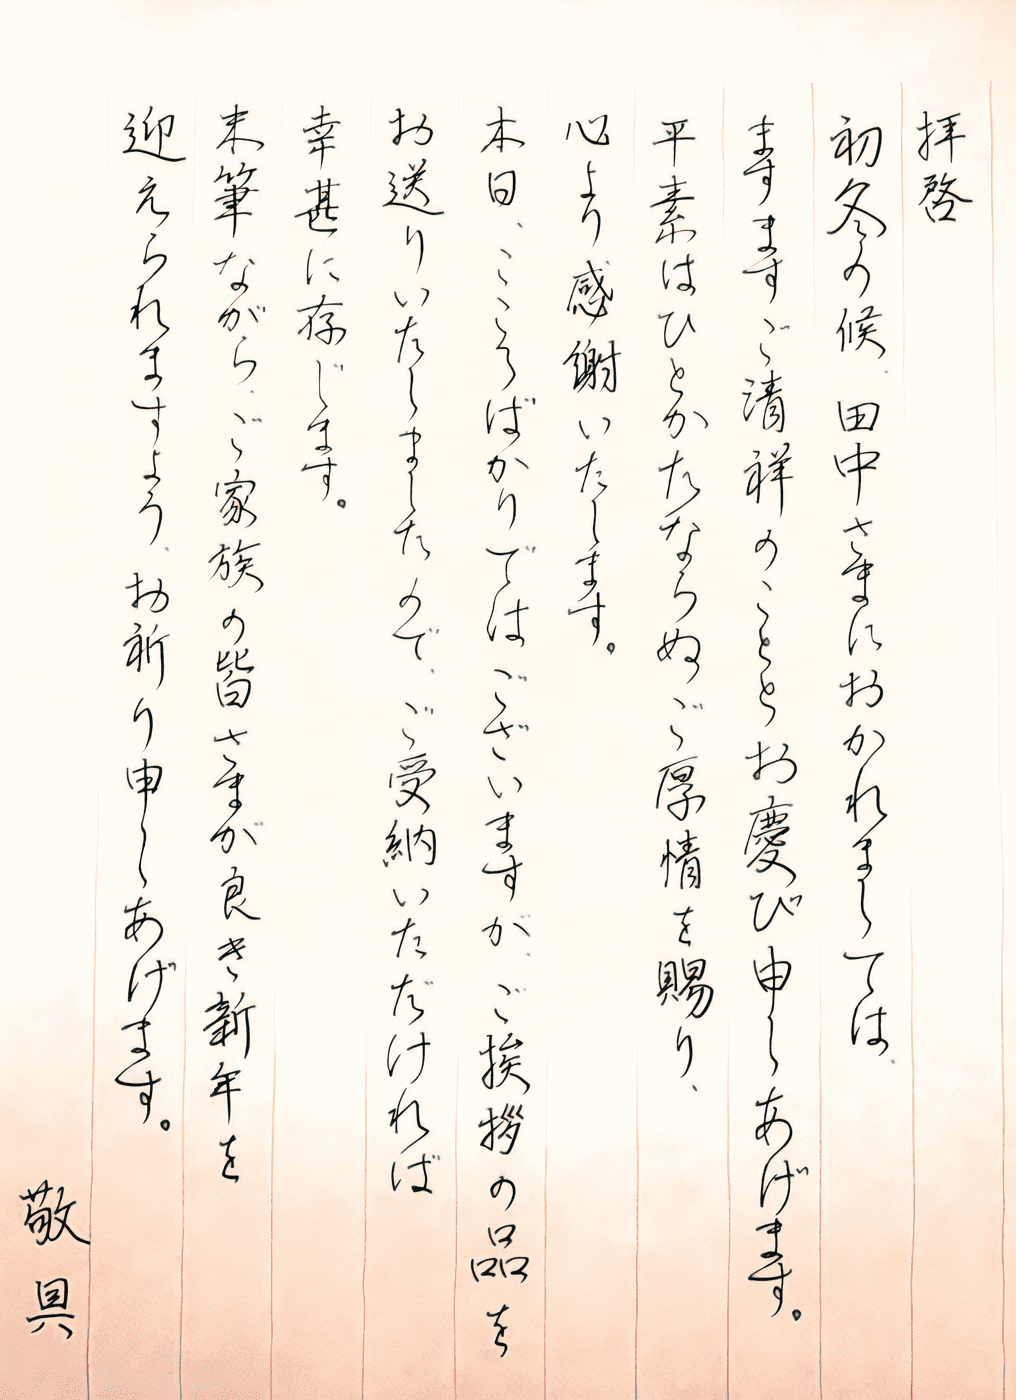 拝啓
初冬の候、田中さまにおかれましては、
ますますご清祥のこととお慶び申しあげます。
平素はひとかたならぬご厚情を賜り、
心より感謝いたします。
本日、こころばかりではございますが、ご挨拶の品を
お送りいたしましたので、ご受納いただければ
幸甚に存じます。
末筆ながら、ご家族の皆さまが良き新年を
迎えられますよう、お祈り申しあげます。
敬具